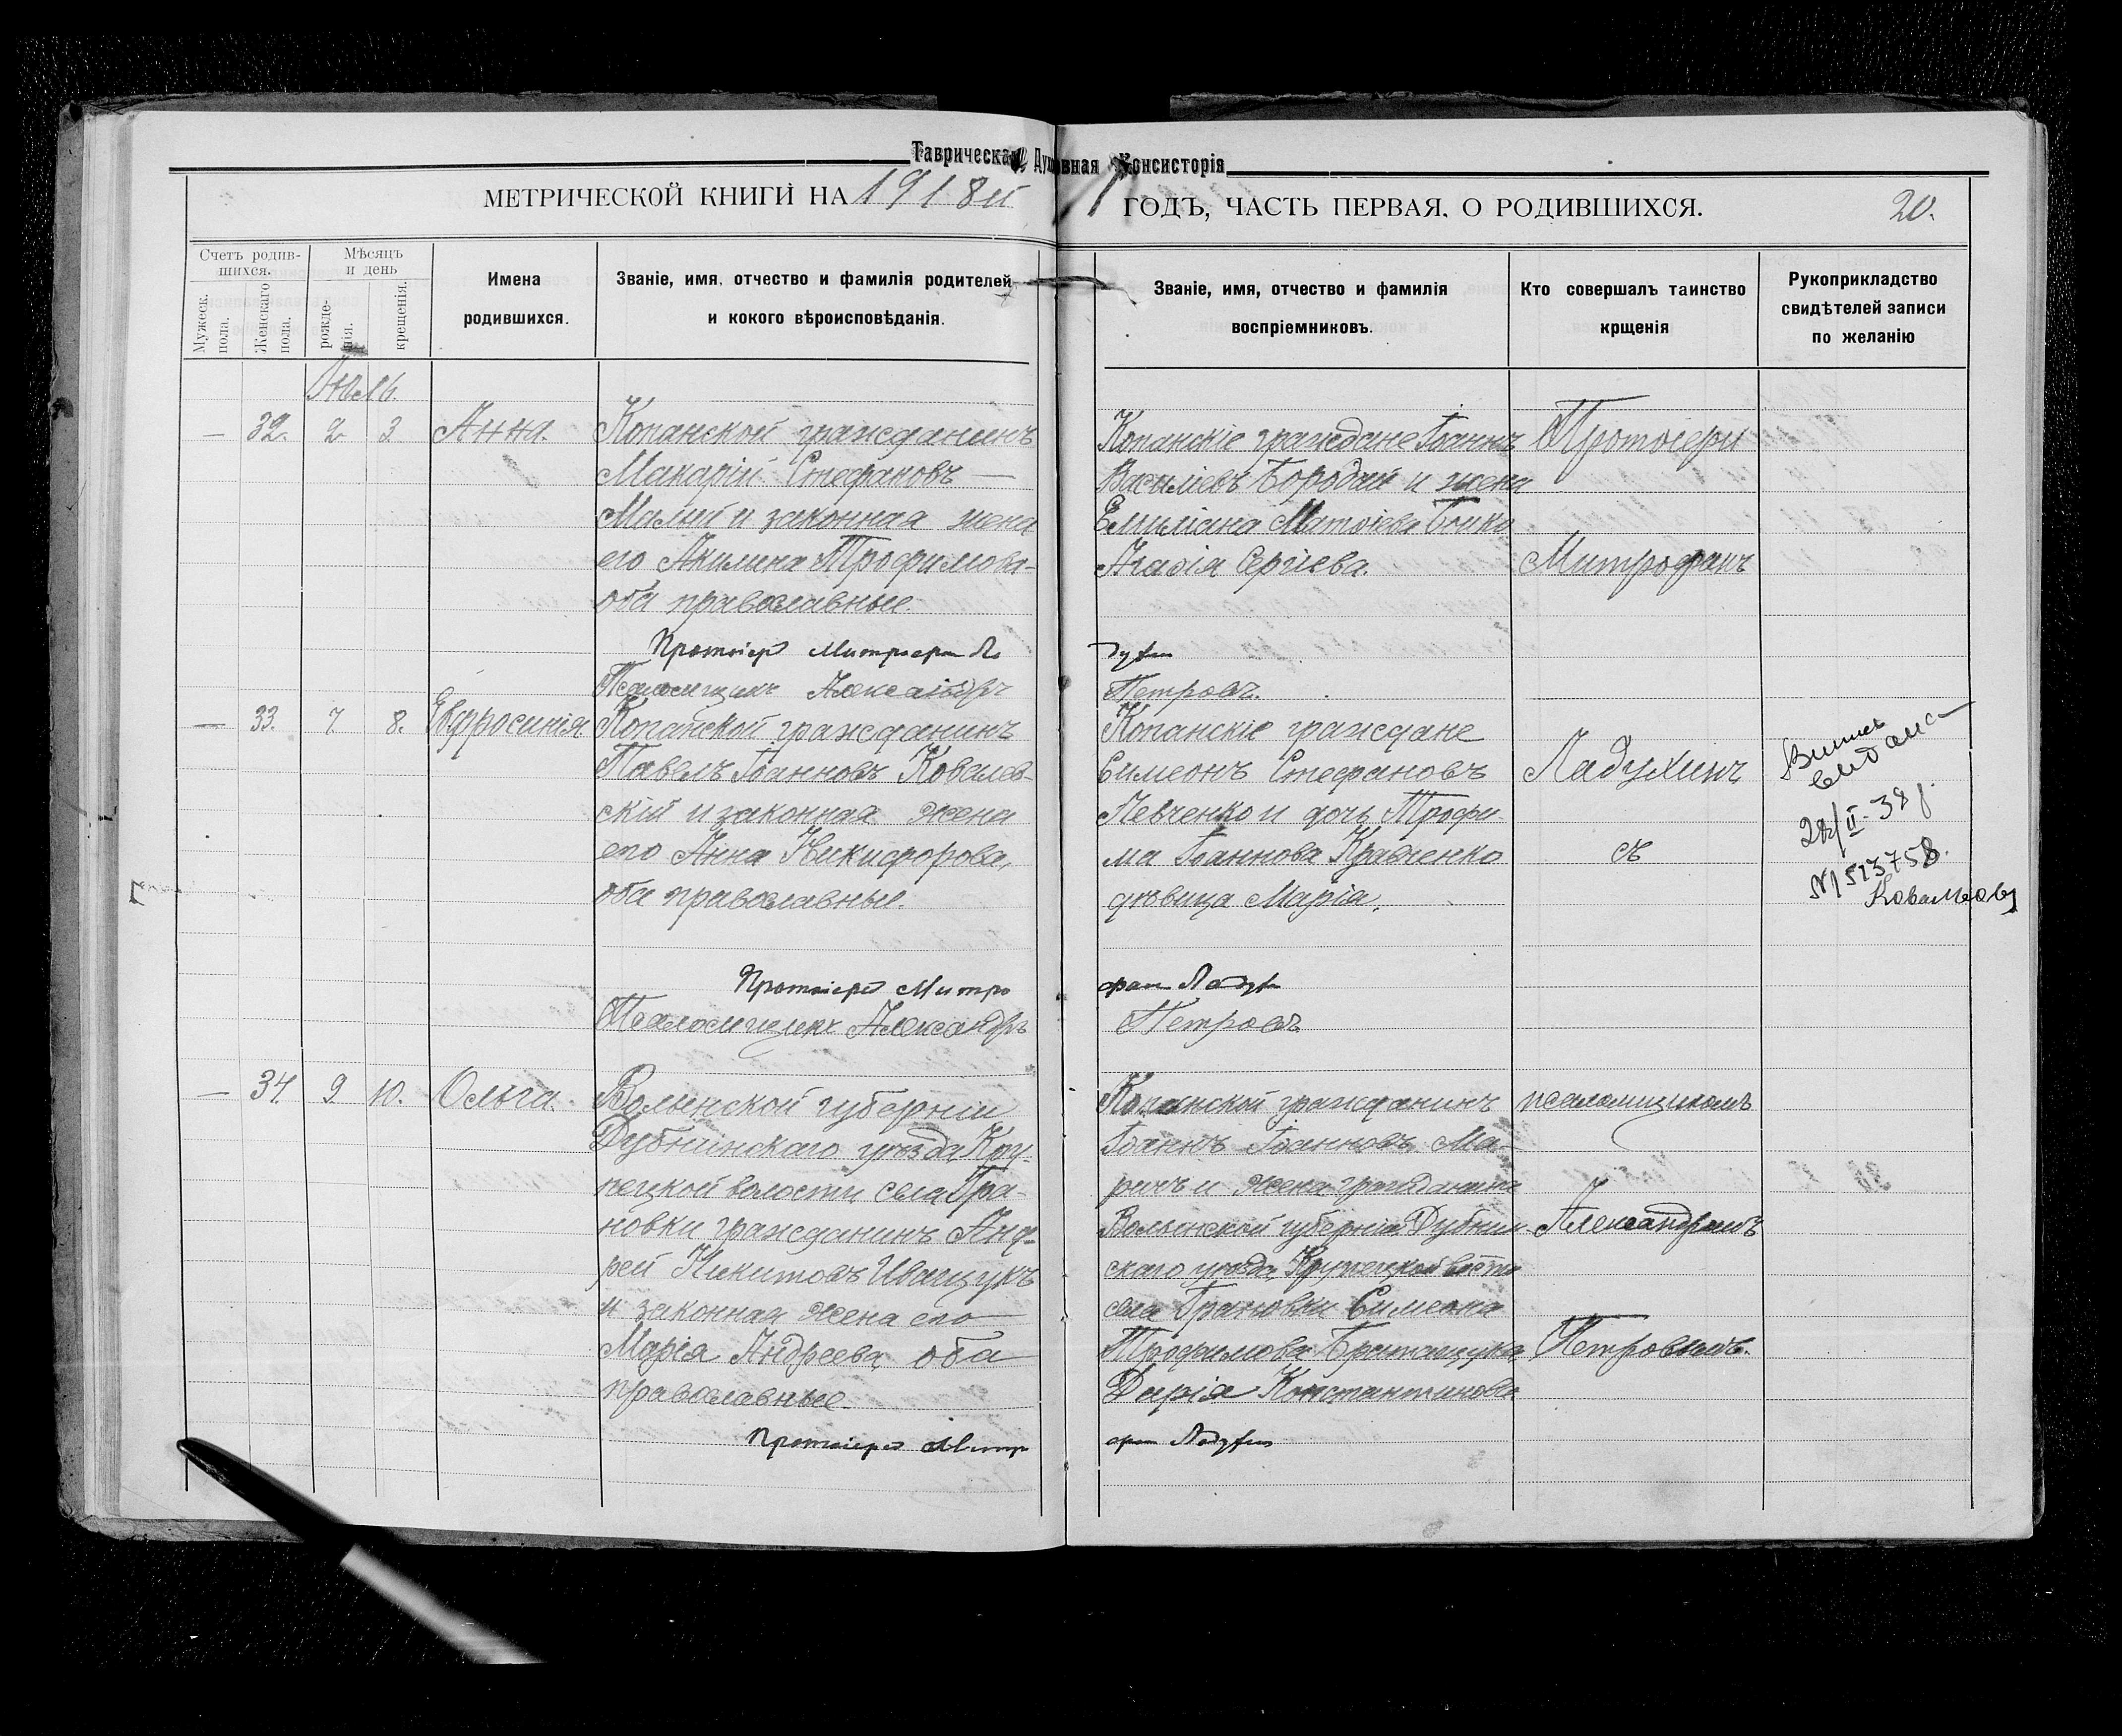 Таврическая Духовная Консисторія
МЕТРИЧЕСКОЙ КНИГИ НА 1918й
ГОДЪ, ЧАСТЬ ПЕРВАЯ, О РОДИВШИХСЯ.
20.
Счетъ родив-
шихся.
Мужеск.
пола.
Женскаго
пола.
Мѣсяцъ
и день
рожде-
нія.
крещенія.
Имена
родившихся.
Званіе, имя, отчество и фамилія родителей
и кокого вѣроисповѣданія.
Званіе, имя, отчество и фамилія
воспріемниковъ.
Кто совершалъ таинство
крщенія
Рукоприкладство
свидѣтелей записи
по желанію
Июль.
— 32. 2 3 Анна.
Копанской гражданинъ
Макарій Стефановъ —
Малый и законная жена
его Акилина Трофимова
оба православные.
Протоіерей Митрофан Ла
Псаломщикъ Александръ
Копанскіе граждане Іоаннъ
Василіевъ Бородай и жена
Емиліана Матѳіева Бойко
Агаѳія Сергіева.
Петровъ.
Протоіерей
Митрофанъ
— 33. 7. 8. Евфросинія
Копанской гражданинъ
Павелъ Іоанновъ Ковалев-
скій и законная жена
его Анна Никифорова,
оба православные.
Протоіерей Митро
Псаломщикъ Александръ
Копанскіе граждане
Симеонъ Стефановъ
Левченко и дочь Трофи-
ма Іоаннова Кравченко
дѣвица Марія.
фан Ладухин
Петровъ
Ладухинъ
съ
28/II-38 г.
№ 513758.
— 34. 9. 10. Ольга.
Волынской губерніи
Дубнинскаго уѣзда Кру-
пецкой волости села
новки гражданинъ Анд-
рей Никитовъ Иващукъ
и законная жена его
Марія Андреева оба
православные.
Протоіерей Митр
Копанской гражданинъ
Іоаннъ Іоанновъ Ма-
ринъ и жена гражданина
Волынской губерніи Дубнин-
скаго уѣзда Крупецкой
села Симеона
Трофимова
Дарія Константинова
фан Ладухин
псаломщикомъ
Александромъ
Петровымъ.